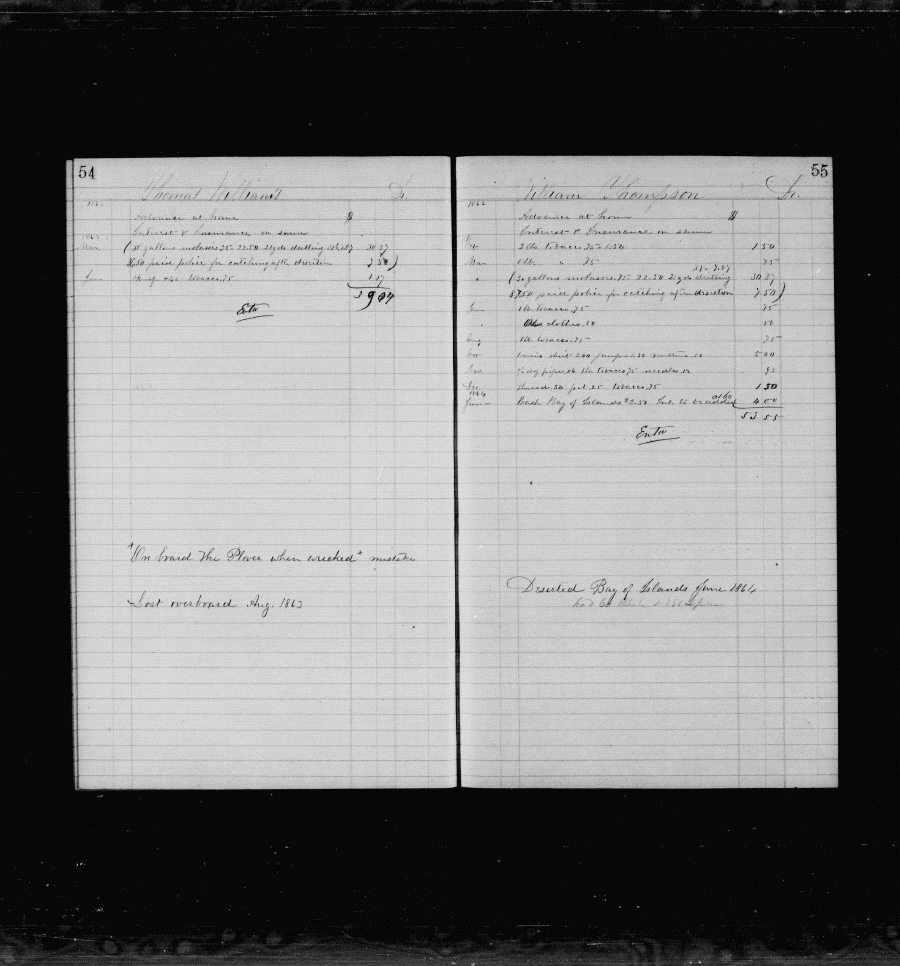 54
Thomas Williams Dr.
1862
Advance at home $
Interest & Insurance on same
1863
Mar (30 gallons molasses .75 - 22.50 21 yds drilling 7.87 30 37
$7.50 paid police for catching after desertion 7 50)
June Knife tobacco .75 1 17
39 04
Entd
"On board the Plover when wrecked" mistake
Lost overboard Aug. 1863
55
William Thompson Dr.
1862
Advance at home $
Interest & Insurance on same
2 lbs tobacco .75 - 1.50 1 50
Mar 1 lb " .75 75
21 - 7.87
" (30 gallons molasses .75 22.50 21 yds drilling 30 37
$7.50 paid police for catching after desertion 7 50)
June 1 lb tobacco .75 75
clothes .50 50
Aug 1 lb tobacco .75 75
Nov shirt 2.00 mittens .50 5 00
pipes .06 1 lb tobacco .75 needles .12 93
Thread .30 pot .25 tobacco .75 1 30
1864
June Cash Bay of Islands $2.50 Int. added 4 00
53 55
Entd
Deserted Bay of Islands June 1864